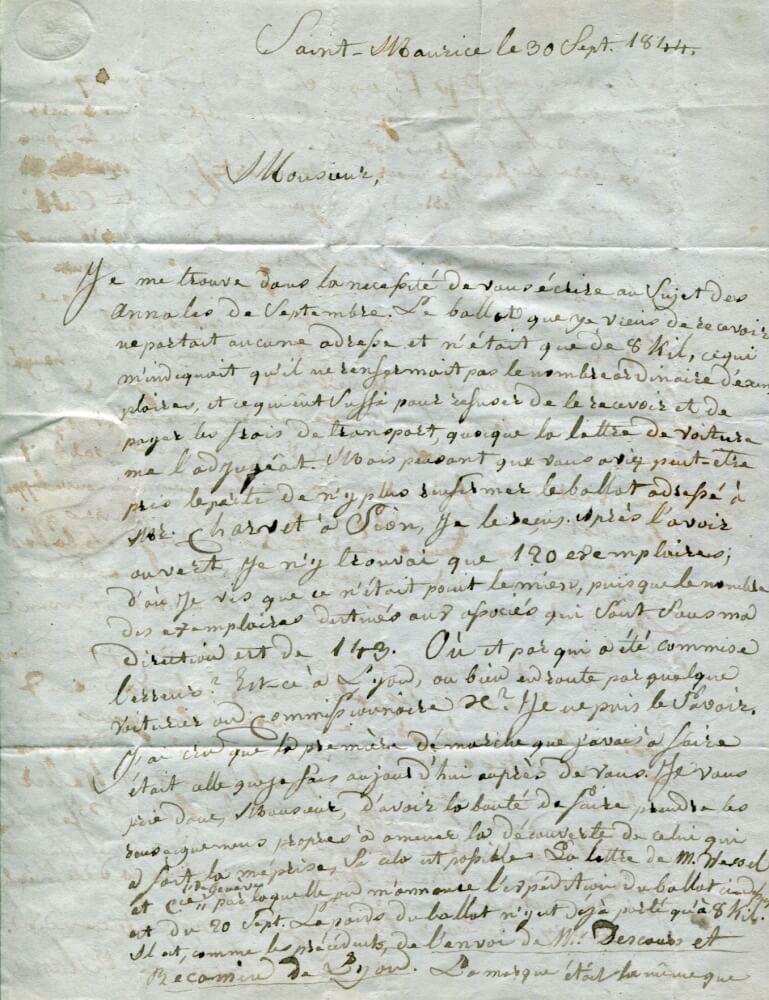 Saint-Maurice le 30 Sept. 1844.
Monsieur,
Je me trouve dans la necessité de vous écrire au Sujet des
Annales de Septembre. Le ballot que je viens de recevoir
ne portait aucune adresse et n'était que de 8 Kil, ce qui
m'indiquoit qu'il ne renfermoit pas le nombre ordinaire d'exem
plaires, et ce qui eut Suffi pour refuser de le recevoir et de
payer les frais de transport, quoique la lettre de voiture
me l'adjugeât. Mais pensant que vous aviez peut-être
pris le parti de n'y plus renfermer le ballot adressé à
Mr. Charvet à Sion, Je le reçus. après l'avoir
ouvert, Je n'y trouvai que 120 exemplaires;
d'où Je vis que ce n'était point le mien, puisque le nombre
des exemplaires destinés aux associés qui Sont Sous ma
direction est de 143. Où et par qui a été commise
l'erreur? Est-ce à Lyon, ou bien en route par quelque
voiturier ou Commissionnaire &c? Je ne puis le Savoir.
J'ai cru que la première démarche que j'avais à faire
était celle que je fais aujourd'hui auprès de vous. Je vous
prie donc, Monsieur, d'avoir la bonté de faire prendre les
renseignemens propres à amener la découverte de celui qui
a fait la méprise, Si cela est possible. La lettre de M.
et Cie par laquelle on m'annonce l'expédition du ballot
est du 20 Sept. Le poids du ballot n'y est déjà porté qu'à 8 Kil.
Il est, comme les précédents, de l'envoi de Mrs. Descours et
Recamier de Lyon. La marque était la même que